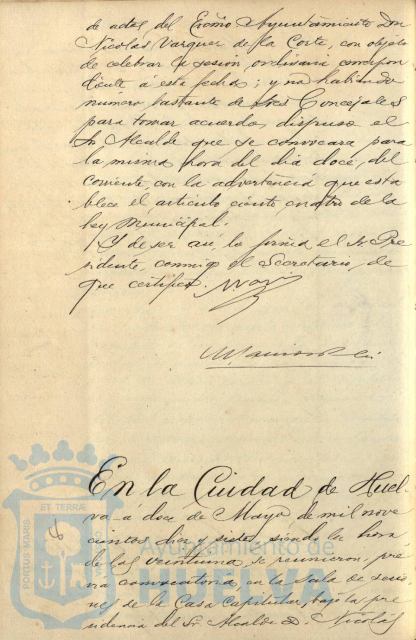 de actas del Excmo Ayuntamiento Don
Nicolás Vazquez de la Corte, con objeto
de celebrar la sesión ordinaria correspon
diente á esta fecha; y no habiendo
número bastante de Sres Concejales
para tomar acuerdo dispuso el
Sr Alcalde que se convocara para
la misma hora del dia doce, del
corriente, con la advertencia que esta
blece el artículo ciento cuatro de la
Ley Municipal.
Y de ser asi, lo firma el Sr Pre
sidente, conmigo el Secretario, de
que certifico.
En la Ciudad de Huel
va á doce de Mayo de mil nove
cientos diez y siete, siendo la hora
de las veintiuna se reunieron, pré
via convocatoria, en la Sala de sesio
nes de la Casa Capitular, bajo la pre
sidencia del Sr Alcalde D. Nicolás
PORTUS MARIS
ET TERRÆ
Ayuntamiento de
HUELVA